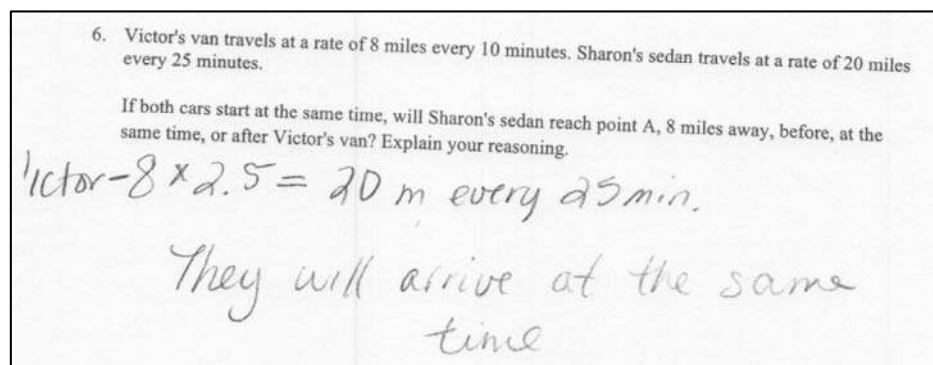 6. Victor's van travels at a rate of 8 miles every 10 minutes. Sharon's sedan travels at a rate of 20 miles
every 25 minutes.
If both cars start at the same time, will Sharon's sedan reach point A, 8 miles away, before, at the
same time, or after Victor's van? Explain your reasoning.
Victor-8 x 2.5 = 20 m every 25 min.
They will arrive at the same
time